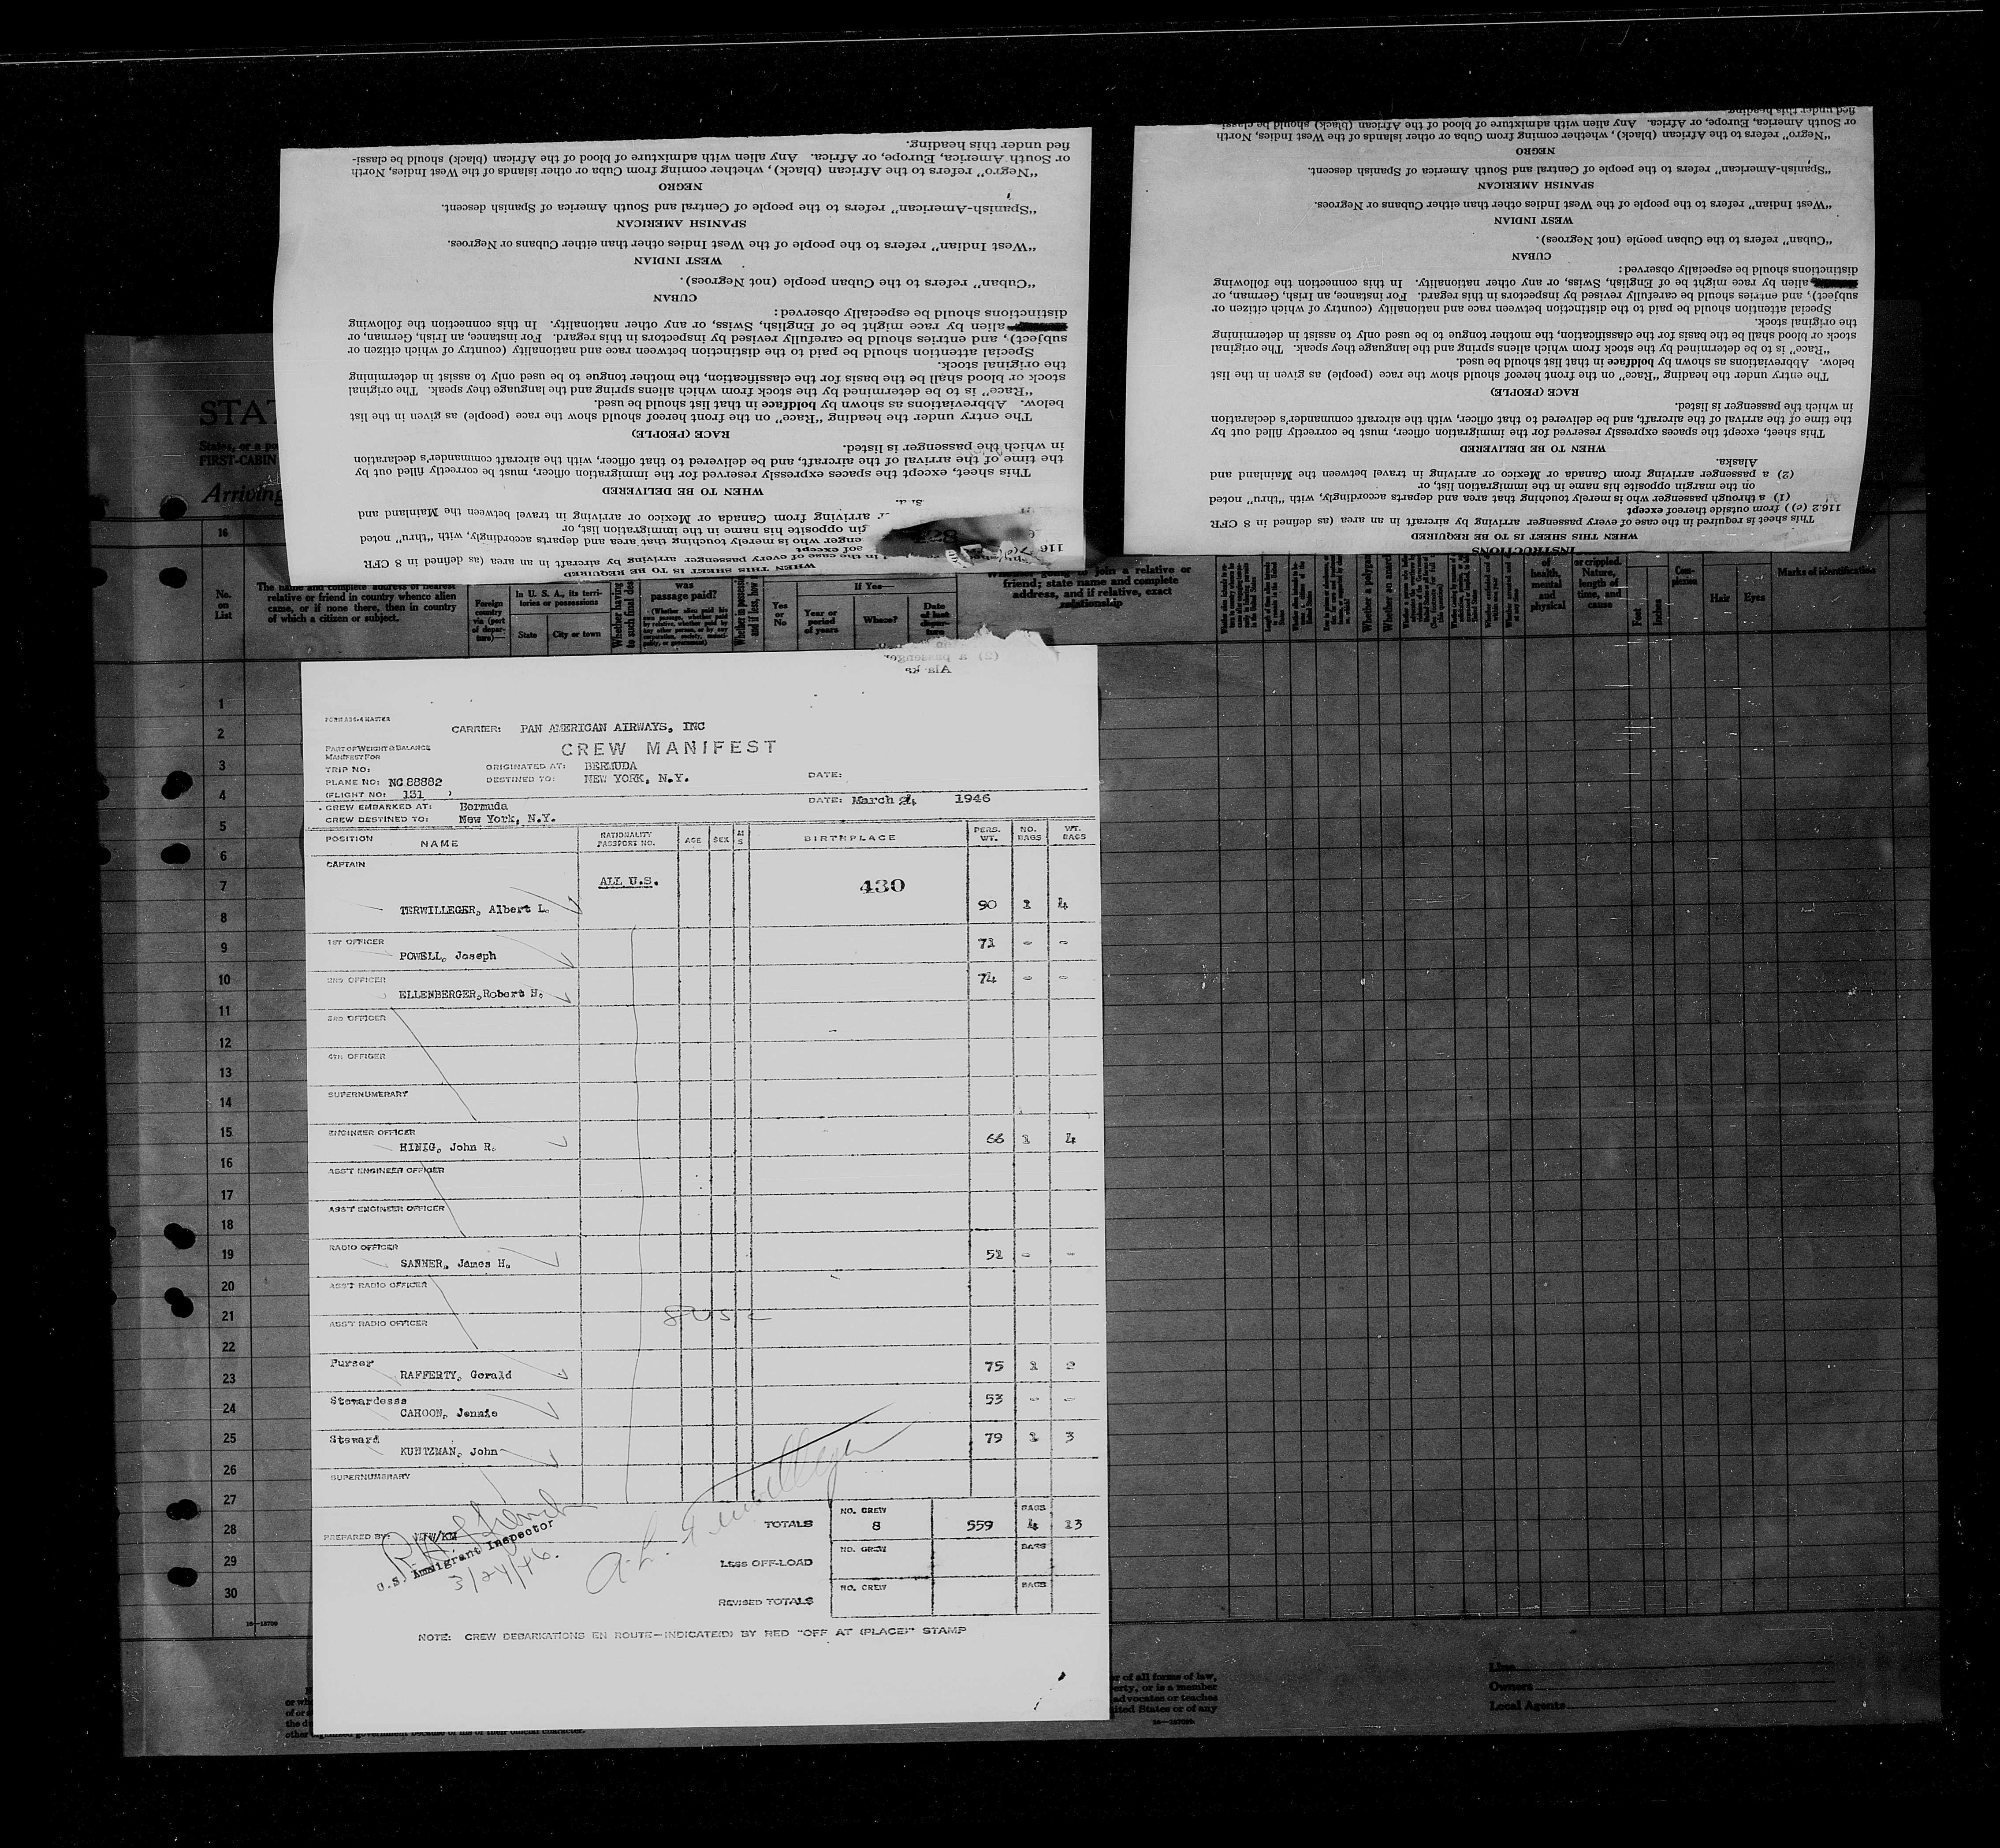 fied under this heading.
or South America, Europe, or Africa. Any alien with admixture of blood of the African (black) should be classi-
"Negro" refers to the African (black), whether coming from Cuba or other islands of the West Indies, North
NEGRO
"Spanish-American" refers to the people of Central and South America of Spanish descent.
SPANISH AMERICAN
"West Indian" refers to the people of the West Indies other than either Cubans or Negroes.
WEST INDIAN
"Cuban" refers to the Cuban people (not Negroes).
CUBAN
distinctions should be especially observed:
alien by race might be of English, Swiss, or any other nationality. In this connection the following
subject), and entries should be carefully revised by inspectors in this regard. For instance, an Irish, German, or
Special attention should be paid to the distinction between race and nationality (country of which citizen or
the original stock.
stock or blood shall be the basis for the classification, the mother tongue to be used only to assist in determining
"Race" is to be determined by the stock from which aliens spring and the language they speak. The original
below. Abbreviations as shown by boldface in that list should be used.
The entry under the heading "Race" on the front hereof should show the race (people) as given in the list
RACE (PEOPLE)
in which the passenger is listed.
the time of the arrival of the aircraft, and be delivered to that officer, with the aircraft commander's declaration
This sheet, except the spaces expressly reserved for the immigration officer, must be correctly filled out by
WHEN TO BE DELIVERED
r arriving from Canada or Mexico or arriving in travel between the Mainland and
gin opposite his name in the immigration list, or
enger who is merely touching that area and departs accordingly, with "thru" noted
eof except
in the case of every passenger arriving by aircraft in an area (as defined in 8 CFR
WHEN THIS SHEET IS TO BE REQUIRED
fied under this heading.
or South America, Europe, or Africa. Any alien with admixture of blood of the African (black) should be classi-
"Negro" refers to the African (black), whether coming from Cuba or other islands of the West Indies, North
NEGRO
"Spanish-American" refers to the people of Central and South America of Spanish descent.
SPANISH AMERICAN
"West Indian" refers to the people of the West Indies other than either Cubans or Negroes.
WEST INDIAN
"Cuban" refers to the Cuban people (not Negroes).
CUBAN
distinctions should be especially observed:
alien by race might be of English, Swiss, or any other nationality. In this connection the following
subject), and entries should be carefully revised by inspectors in this regard. For instance, an Irish, German, or
Special attention should be paid to the distinction between race and nationality (country of which citizen or
the original stock.
stock or blood shall be the basis for the classification, the mother tongue to be used only to assist in determining
"Race" is to be determined by the stock from which aliens spring and the language they speak. The original
below. Abbreviations as shown by boldface in that list should be used.
The entry under the heading "Race" on the front hereof should show the race (people) as given in the list
RACE (PEOPLE)
in which the passenger is listed.
the time of the arrival of the aircraft, and be delivered to that officer, with the aircraft commander's declaration
This sheet, except the spaces expressly reserved for the immigration officer, must be correctly filled out by
WHEN TO BE DELIVERED
Alaska.
(2) a passenger arriving from Canada or Mexico or arriving in travel between the Mainland and
on the margin opposite his name in the immigration list, or
(1) a through passenger who is merely touching that area and departs accordingly, with "thru" noted
116.2 (e)) from outside thereof except
This sheet is required in the case of every passenger arriving by aircraft in an area (as defined in 8 CFR
WHEN THIS SHEET IS TO BE REQUIRED
INSTRUCTIONS
STAT
States, or a po
FIRST-CABIN
Arriving
16
No. on List
The name and complete address of nearest relative or friend in country whence alien came, or if none there, then in country of which a citizen or subject.
Foreign country via (port of departure)
In U. S. A., its territories or possessions
State City or town
was passage paid?
If Yes
Yes or No Year or period of years Where?
join a relative or friend; state name and complete address, and if relative, exact relationship
of health, mental and physical
or crippled. Nature, length of time, and cause
Feet Inches
Com-plexion
Hair Eyes
Marks of identification
(2) a passenger
FORM A36-4 MASTER
CARRIER: PAN AMERICAN AIRWAYS, INC
CREW MANIFEST
PART OF WEIGHT & BALANCE
MANIFEST FOR
TRIP NO: ORIGINATED AT: BERMUDA
PLANE NO: NC 88882 DESTINED TO: NEW YORK, N.Y. DATE:
(FLIGHT NO: 131 )
CREW EMBARKED AT: Bermuda DATE: March 24 1946
CREW DESTINED TO: New York, N.Y.
POSITION NAME NATIONALITY PASSPORT NO. AGE SEX M S BIRTHPLACE PERS. WT. NO. BAGS WT. BAGS
CAPTAIN
ALL U.S. 430
TERWILLEGER, Albert L. 90 1 4
1ST OFFICER
POWELL, Joseph 71 - -
2ND OFFICER
ELLENBERGER, Robert H. 74 - -
3RD OFFICER
4TH OFFICER
SUPERNUMERARY
ENGINEER OFFICER
HINIG, John R. 66 1 4
ASS'T ENGINEER OFFICER
ASS'T ENGINEER OFFICER
RADIO OFFICER
SANNER, James H. 51 - -
ASS'T RADIO OFFICER
8 USC
ASS'T RADIO OFFICER
Purser
RAFFERTY, Gerald 75 1 2
Stewardesss
CAHOON, Jennie 53 - -
Steward
KUNTZMAN, John 79 1 3
SUPERNUMERARY
TOTALS NO. CREW 8 559 BAGS 4 13
PREPARED BY:
U.S. Immigrant Inspector
3/24/46.
A. L. Terwilleger
LESS OFF-LOAD NO. CREW BAGS
REVISED TOTALS NO. CREW BAGS
NOTE: CREW DEBARKATIONS EN ROUTE—INDICATE(D) BY RED "OFF AT (PLACE)" STAMP
1
2
3
4
5
6
7
8
9
10
11
12
13
14
15
16
17
18
19
20
21
22
23
24
25
26
27
28
29
30
16—18709
r of all forms of law,
erty, or is a member
advocates or teaches
ited States or of any
other organized government because of his or their official character.
Line
Owners
Local Agents